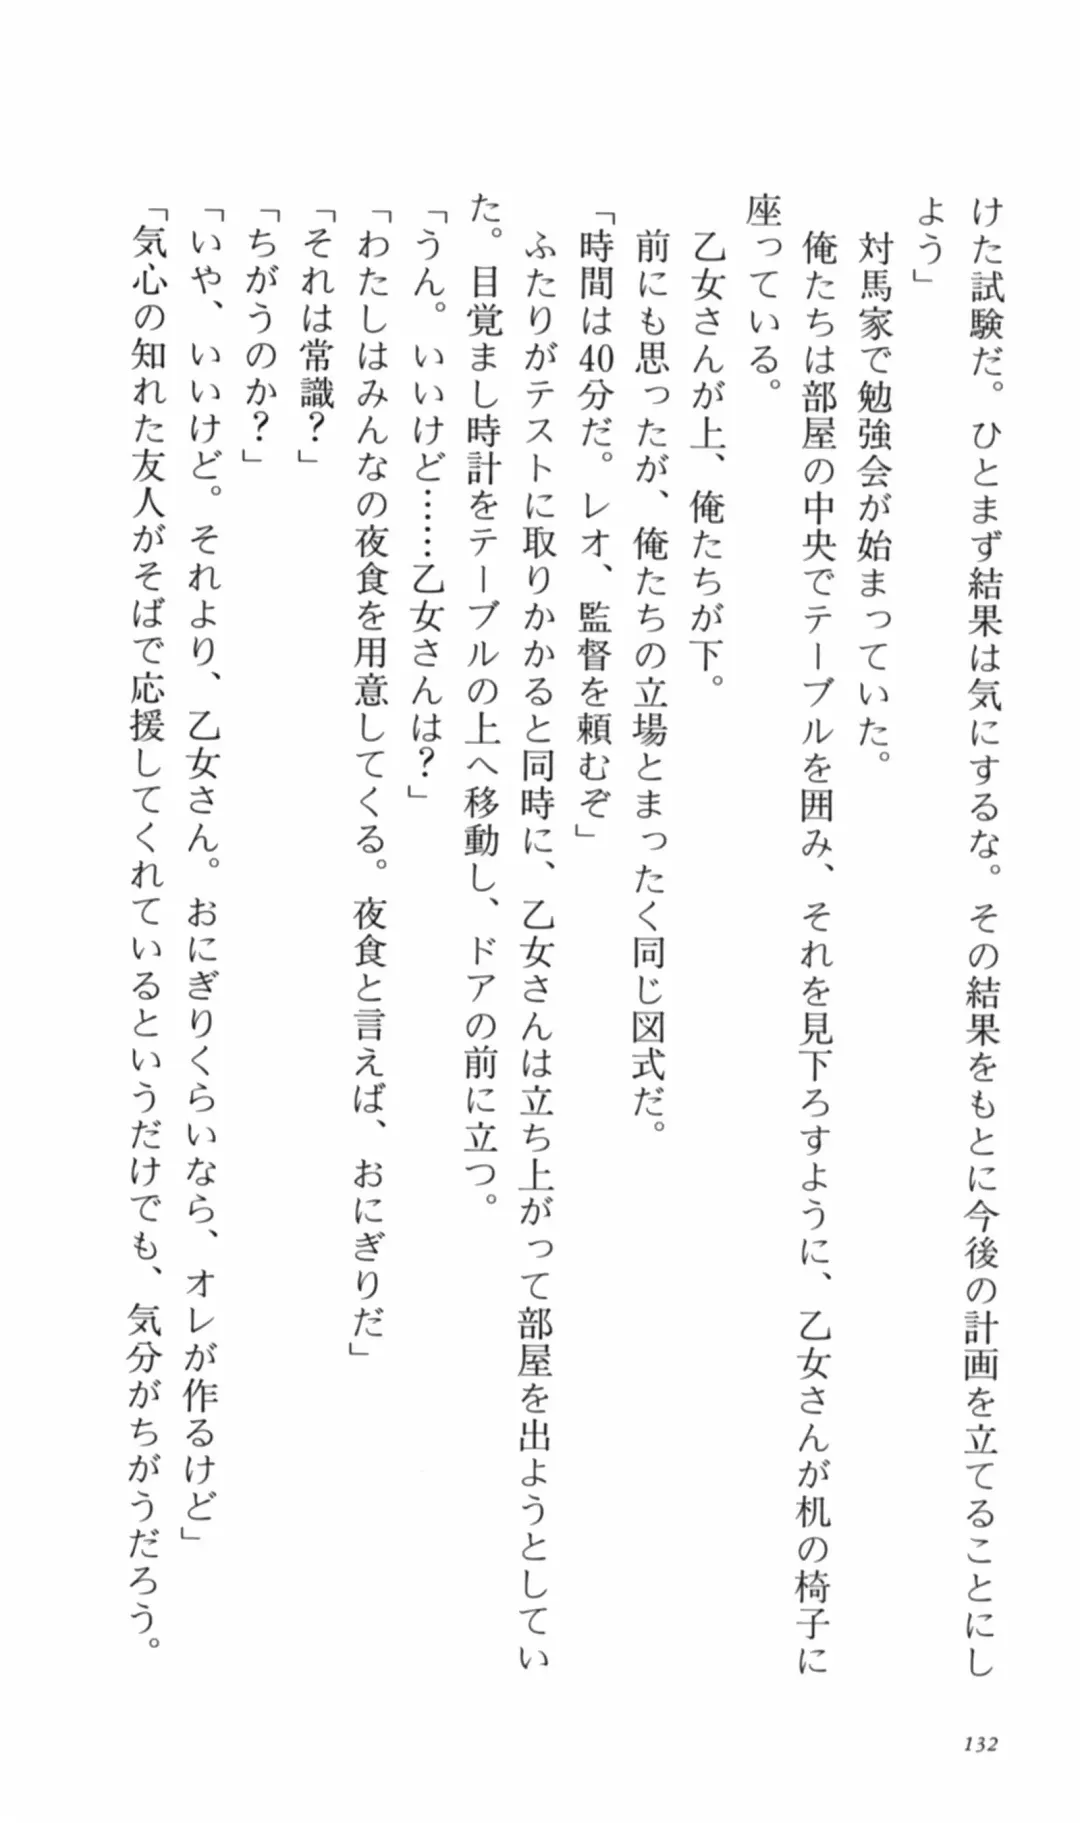 けた試験だ。ひとまず結果は気にするな。その結果をもとに今後の計画を立てることにし
よう」
対馬家で勉強会が始まっていた。
俺たちは部屋の中央でテーブルを囲み、それを見下ろすように、乙女さんが机の椅子に
座っている。
乙女さんが上、俺たちが下。
前にも思ったが、俺たちの立場とまったく同じ図式だ。
「時間は40分だ。レオ、監督を頼むぞ」
ふたりがテストに取りかかると同時に、乙女さんは立ち上がって部屋を出ようとしてい
た。目覚まし時計をテーブルの上へ移動し、ドアの前に立つ。
「うん。いいけど……乙女さんは？」
「わたしはみんなの夜食を用意してくる。夜食と言えば、おにぎりだ」
「それは常識？」
「ちがうのか？」
「いや、いいけど。それより、乙女さん。おにぎりくらいなら、オレが作るけど」
「気心の知れた友人がそばで応援してくれているというだけでも、気分がちがうだろう。
132